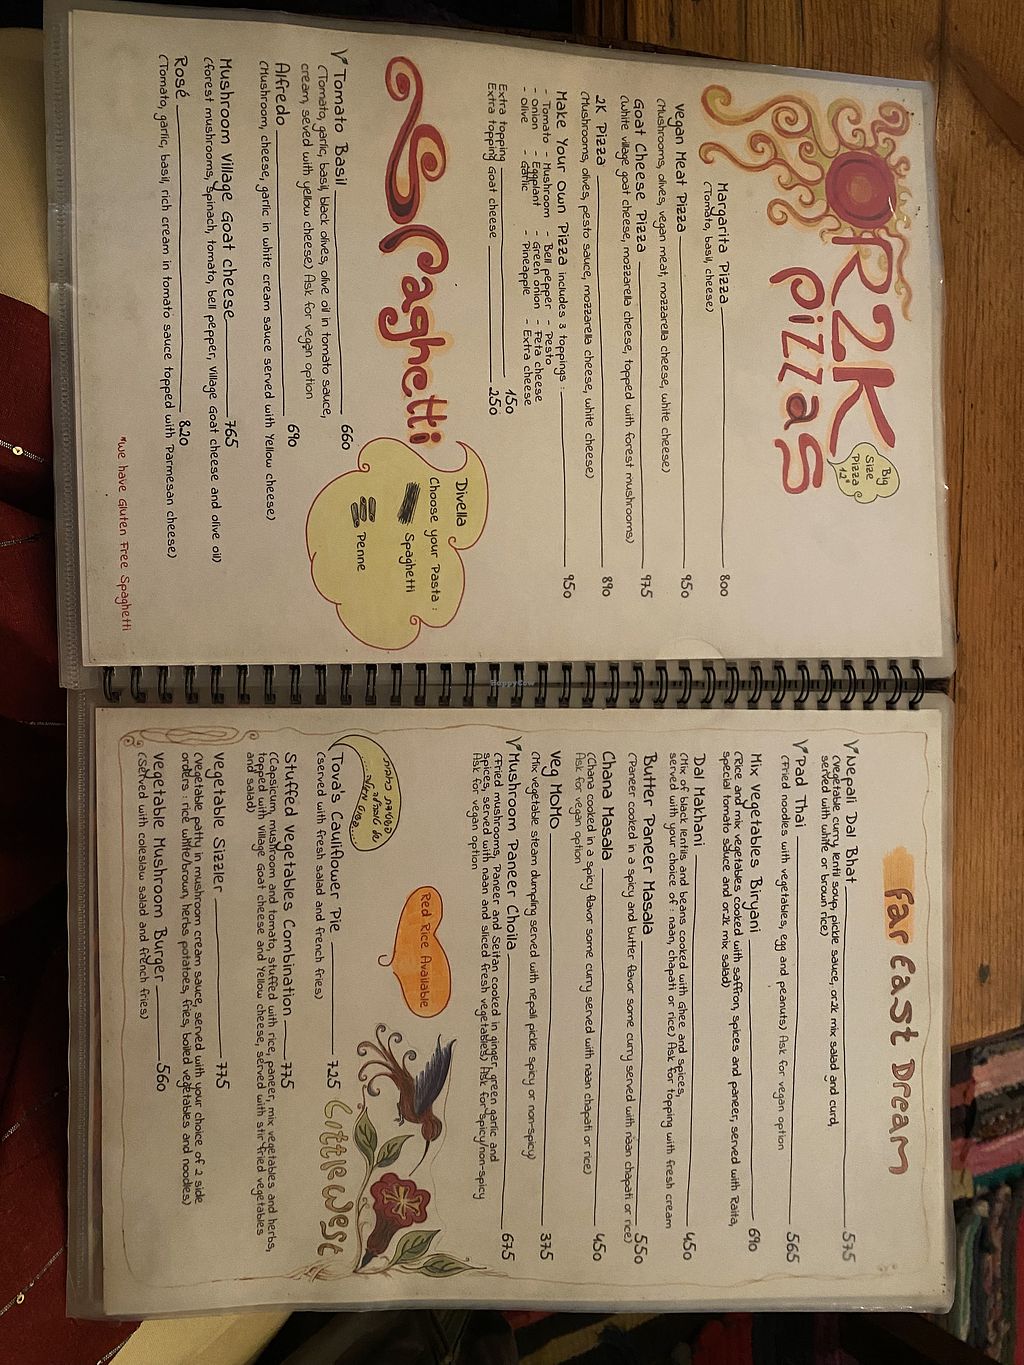 OR2K
Pizzas
Big
Size
Pizza
12"
Margarita Pizza 800
(Tomato, basil, cheese)
Vegan Meat Pizza 950
(Mushrooms, olives, vegan meat, mozzarella cheese, white cheese)
Goat Cheese Pizza 975
(White village goat cheese, mozzarella cheese, topped with forest mushrooms)
2K Pizza 890
(Mushrooms, olives, pesto sauce, mozzarella cheese, white cheese)
Make Your Own Pizza includes 3 toppings : 950
- Tomato - Mushroom - Bell pepper - Pesto
- Onion - Eggplant - Green onion - Feta cheese
- Olive - Garlic - Pineapple - Extra cheese
Extra topping 150
Extra topping Goat cheese 250
Spaghetti
Divella
Choose your Pasta :
Spaghetti
Penne
V Tomato Basil 660
(Tomato, garlic, basil, black olives, olive oil in tomato sauce,
cream, served with yellow cheese) Ask for vegan option
Alfredo 690
(Mushroom, cheese, garlic in white cream sauce served with Yellow cheese)
Mushroom Village Goat cheese 765
(Forest mushrooms, spinach, tomato, bell pepper, Village Goat cheese and olive oil)
Rosé 820
(Tomato, garlic, basil, rich cream in tomato sauce topped with Parmesan cheese)
*we have Gluten Free Spaghetti
Far East Dream
V Nepali Dal Bhat 575
(Vegetable curry, lentil soup, pickle sauce, or2k mix salad and curd,
served with white or brown rice)
V Pad Thai 565
(Fried noodles with vegetables, egg and peanuts) Ask for vegan option
Mix Vegetables Biryani 690
(Rice and mix vegetables cooked with saffron, spices and paneer, served with Raita,
special tomato sauce and or2k mix salad)
Dal Makhani 450
(Mix of black lentils and beans cooked with Ghee and spices,
served with your choice of : naan, chapati or rice) Ask for topping with fresh cream
Butter Paneer Masala 550
(Paneer cooked in a spicy and butter flavor some curry served with naan chapati or rice)
Chana Masala 450
(Chana cooked in a spicy flavor some curry served with naan chapati or rice)
Ask for vegan option
Veg MoMo 375
(Mix vegetable steam dumpling served with nepali pickle spicy or non-spicy)
V Mushroom Paneer Choila 675
(Fried mushrooms, Paneer and Seitan cooked in ginger, green garlic and
spices, served with naan and sliced fresh vegetables) Ask for spicy/non-spicy
Ask for vegan option
Red Rice Available
Little West
Tova's Cauliflower Pie 725
(served with fresh salad and french fries)
Stuffed Vegetables Combination 775
(Capsicum, mushroom and tomato, stuffed with rice, paneer, mix vegetables and herbs,
topped with Village Goat cheese and Yellow cheese, served with stir fried vegetables
and salad)
Vegetable Sizzler 775
(Vegetable patty in mushroom cream sauce, served with your choice of 2 side
orders : rice white/brown, herbs potatoes, fries, boiled vegetables and noodles)
Vegetable Mushroom Burger 560
(Served with coleslaw salad and french fries)
HappyCow